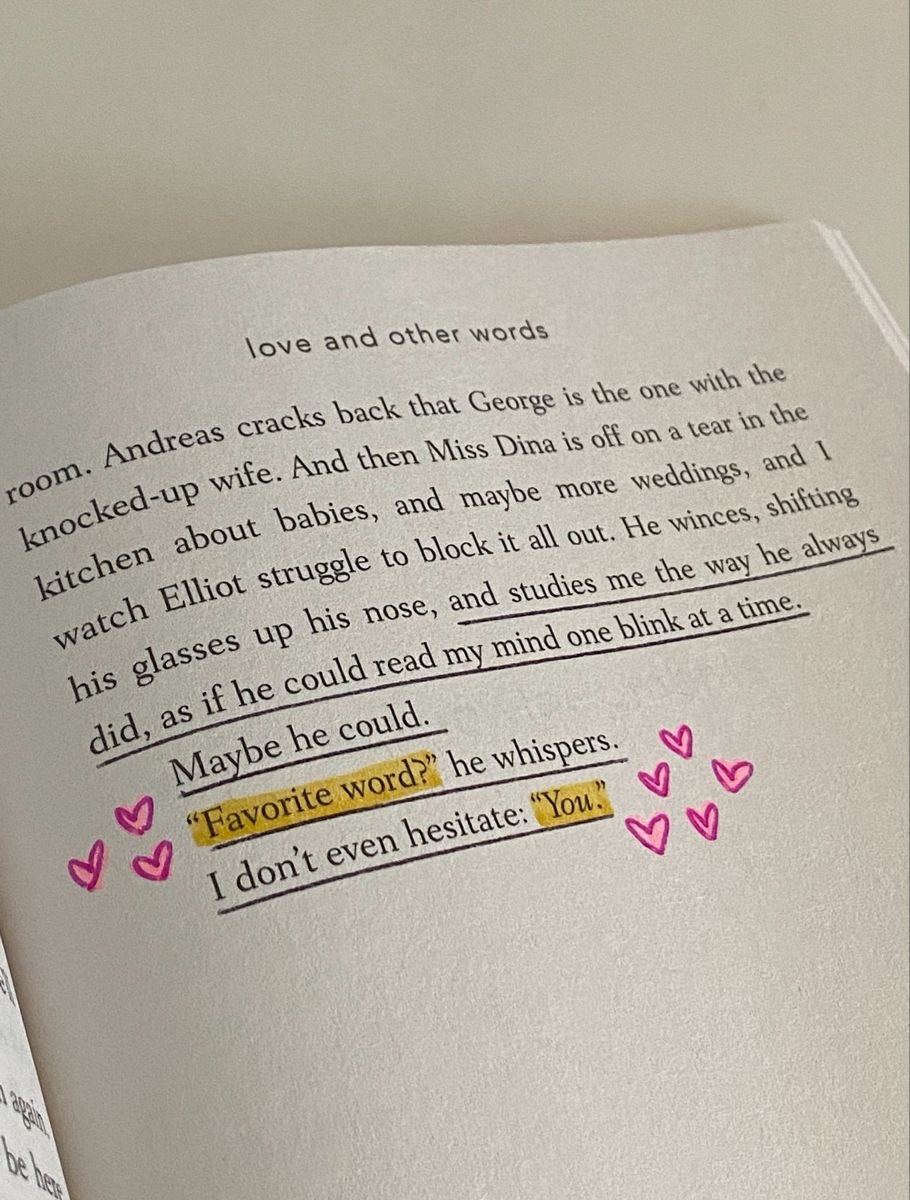 love and other words
room. Andreas cracks back that George is the one with the
knocked-up wife. And then Miss Dina is off on a tear in the
kitchen about babies, and maybe more weddings, and I
watch Elliot struggle to block it all out. He winces, shifting
his glasses up his nose, and studies me the way he always
did, as if he could read my mind one blink at a time.
Maybe he could.
“Favorite word?” he whispers.
I don’t even hesitate: “You.”
again,
be here